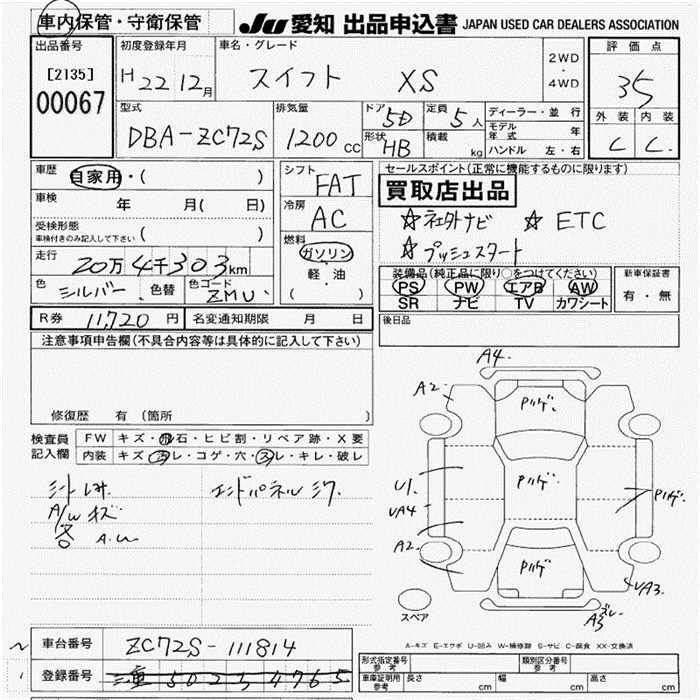 車内保管・守衛保管 JU 愛知 出品申込書 JAPAN USED CAR DEALERS ASSOCIATION
出品番号 初度登録年月 車名・グレード 2WD・4WD 評価点
[2135] H 22 12月 スイフト XS 35
00067
型式 排気量 ドア 5D 定員 5人 ディーラー・並行 外装 内装
DBA-ZC72S 1200cc 形状 HB 積載 kg モデル年式 年 C C
ハンドル 左・右
車歴 自家用・( ) シフト FAT セールスポイント(正常に機能するものに限ります)
買取店出品
車検 年 月( 日) 冷房 AC ☆社外ナビ ☆ETC
受検形態 ☆プッシュスタート
車検付きのみ記入して下さい ( )
走行 20万4千303km 燃料 ガソリン
軽・油
( )
装備品(純正品に限り○をつけてください) 新車保証書
色 シルバー 色替 色コード ZMU PS PW エアB AW 有・無
SR ナビ TV カワシート
R券 11,720円 名変通知期限 月 日 後日品
注意事項申告欄(不具合内容等は具体的に記入して下さい)
修復歴 有(箇所 )
検査員 FW キズ・飛石・ヒビ割・リペア跡・X要
記入欄 内装 キズ・汚レ・コゲ・穴・スレ・キレ・破レ
A/Wキズ エンドパネル
A4
A2
U1
UA4
A2
UA3
スペア
A-キズ E-エクボ U-凹み W-補修跡 S-サビ C-腐食 XX-交換済
車台番号 ZC72S-111814
登録番号
形式指定番号 参考 類別区分番号 参考
車庫証明用 参考 長さ cm 幅 cm 高さ cm